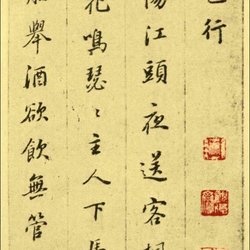 行
陽江頭夜送客楓
花鳴瑟〻主人下馬
舉酒欲飲無管